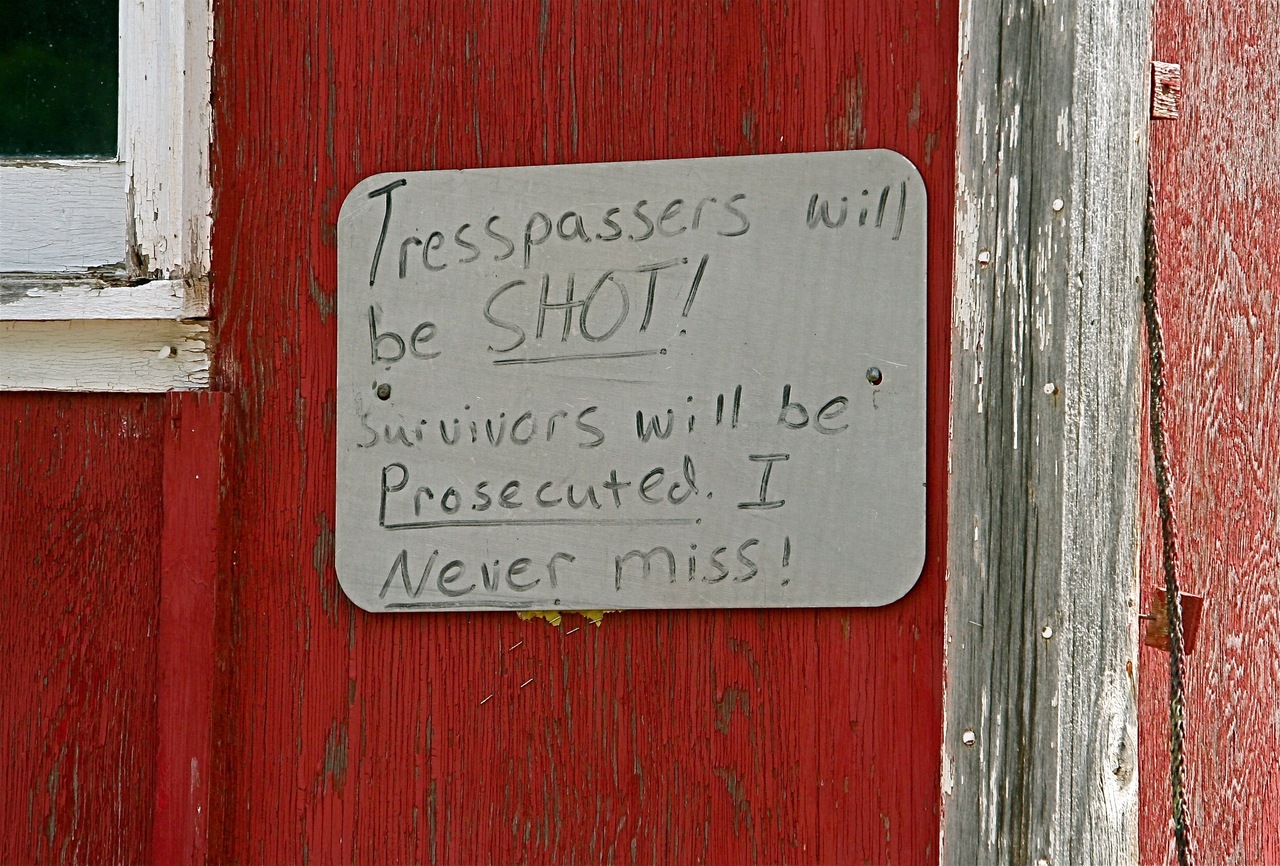 Tresspassers will
be SHOT!
survivors will be
Prosecuted. I
Never miss!